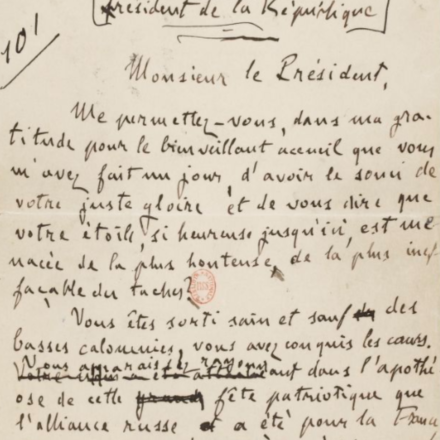 Président de la République
101
Monsieur le Président,
Me permettez-vous, dans ma gra-
titude pour le bienveillant accueil que vous
m'avez fait un jour, d'avoir le souci de
votre juste gloire et de vous dire que
votre étoile, si heureuse jusqu'ici, est me
nacée de la plus honteuse, de la plus inef
façable des taches?
Vous êtes sorti sain et sauf des
basses calomnies, vous avez conquis les cœurs.
Vous apparaissez rayonn
ant dans l'apothé
ose de cette grande fête patriotique que
l'alliance russe a été pour la France